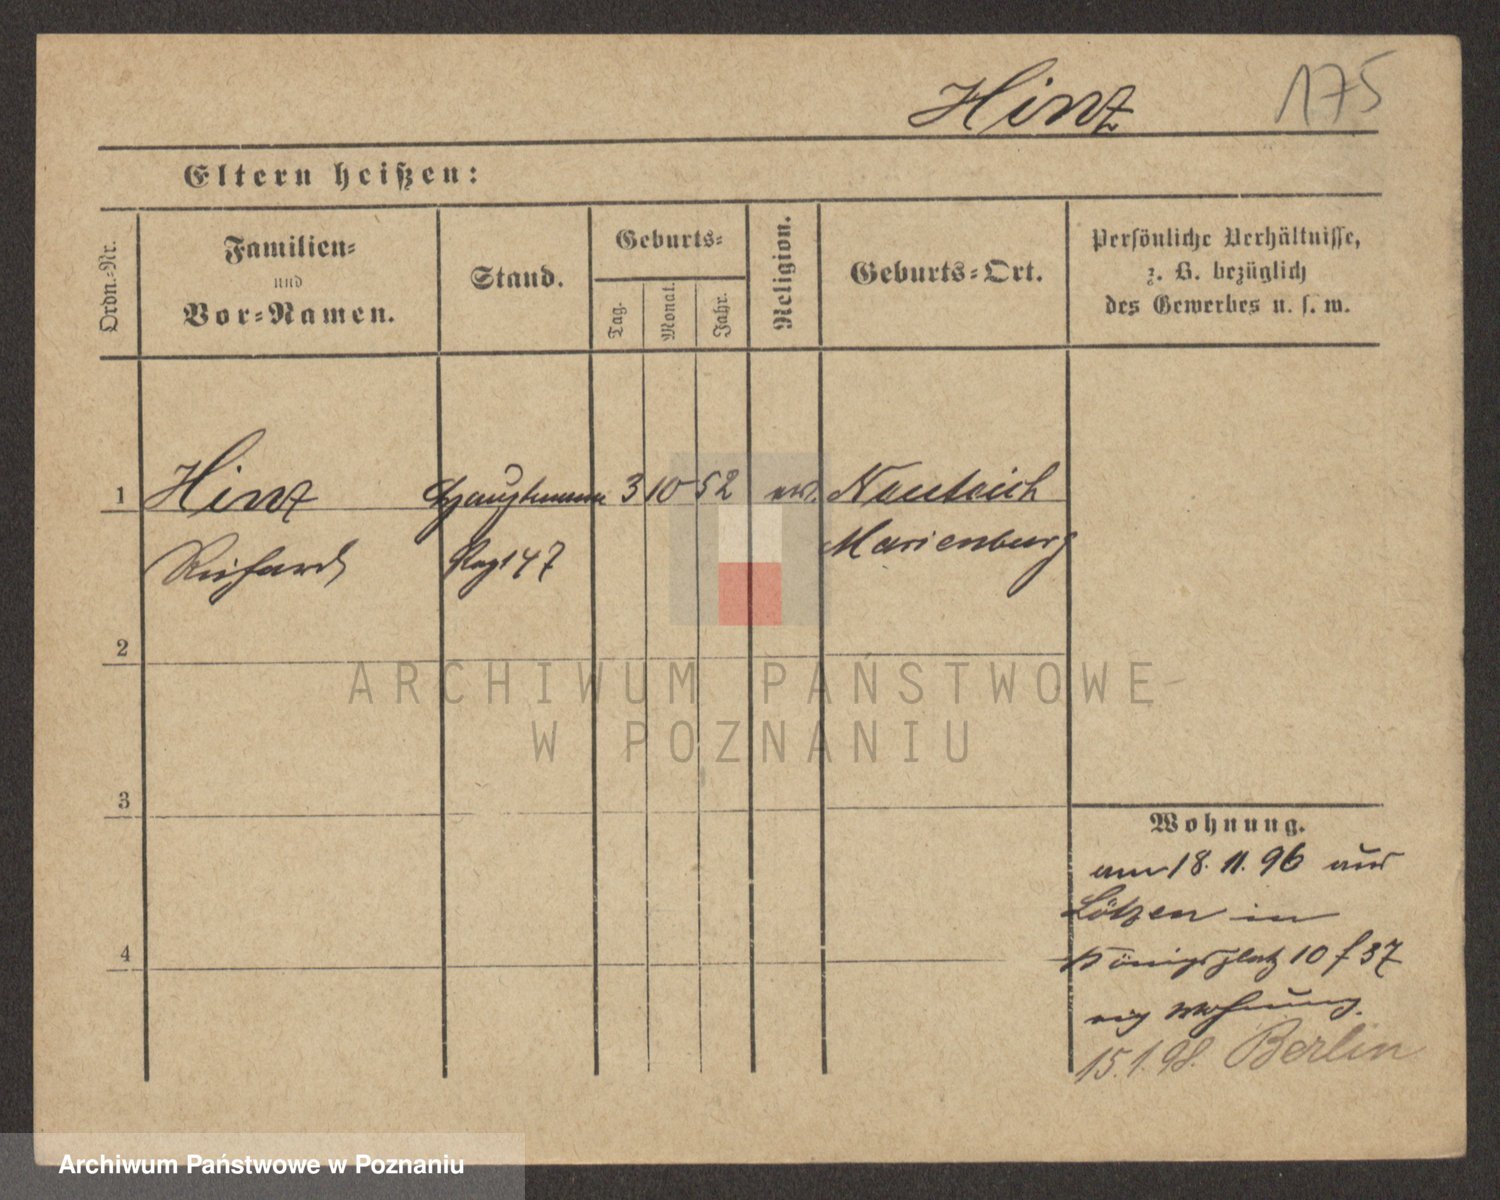 Hinz 175
Eltern heißen:
Ordn.-Nr.
Familien-
und
Vor-Namen.
Stand.
Geburts-
Tag.
Monat.
Jahr.
Religion.
Geburts-Ort.
Persönliche Verhältnisse,
z. B. bezüglich
des Gewerbes u. s. w.
1 Hinz Hauptmann 3 10 52 ev. Neuteich
Richard Rgt 147 Marienburg
2
3
4
Wohnung.
am 18. 11. 96 aus
Lötzen in
Königsplatz 10 f 37
eig Wohnung.
15.1.98. Berlin
ARCHIWUM PAŃSTWOWE
W POZNANIU
Archiwum Państwowe w Poznaniu